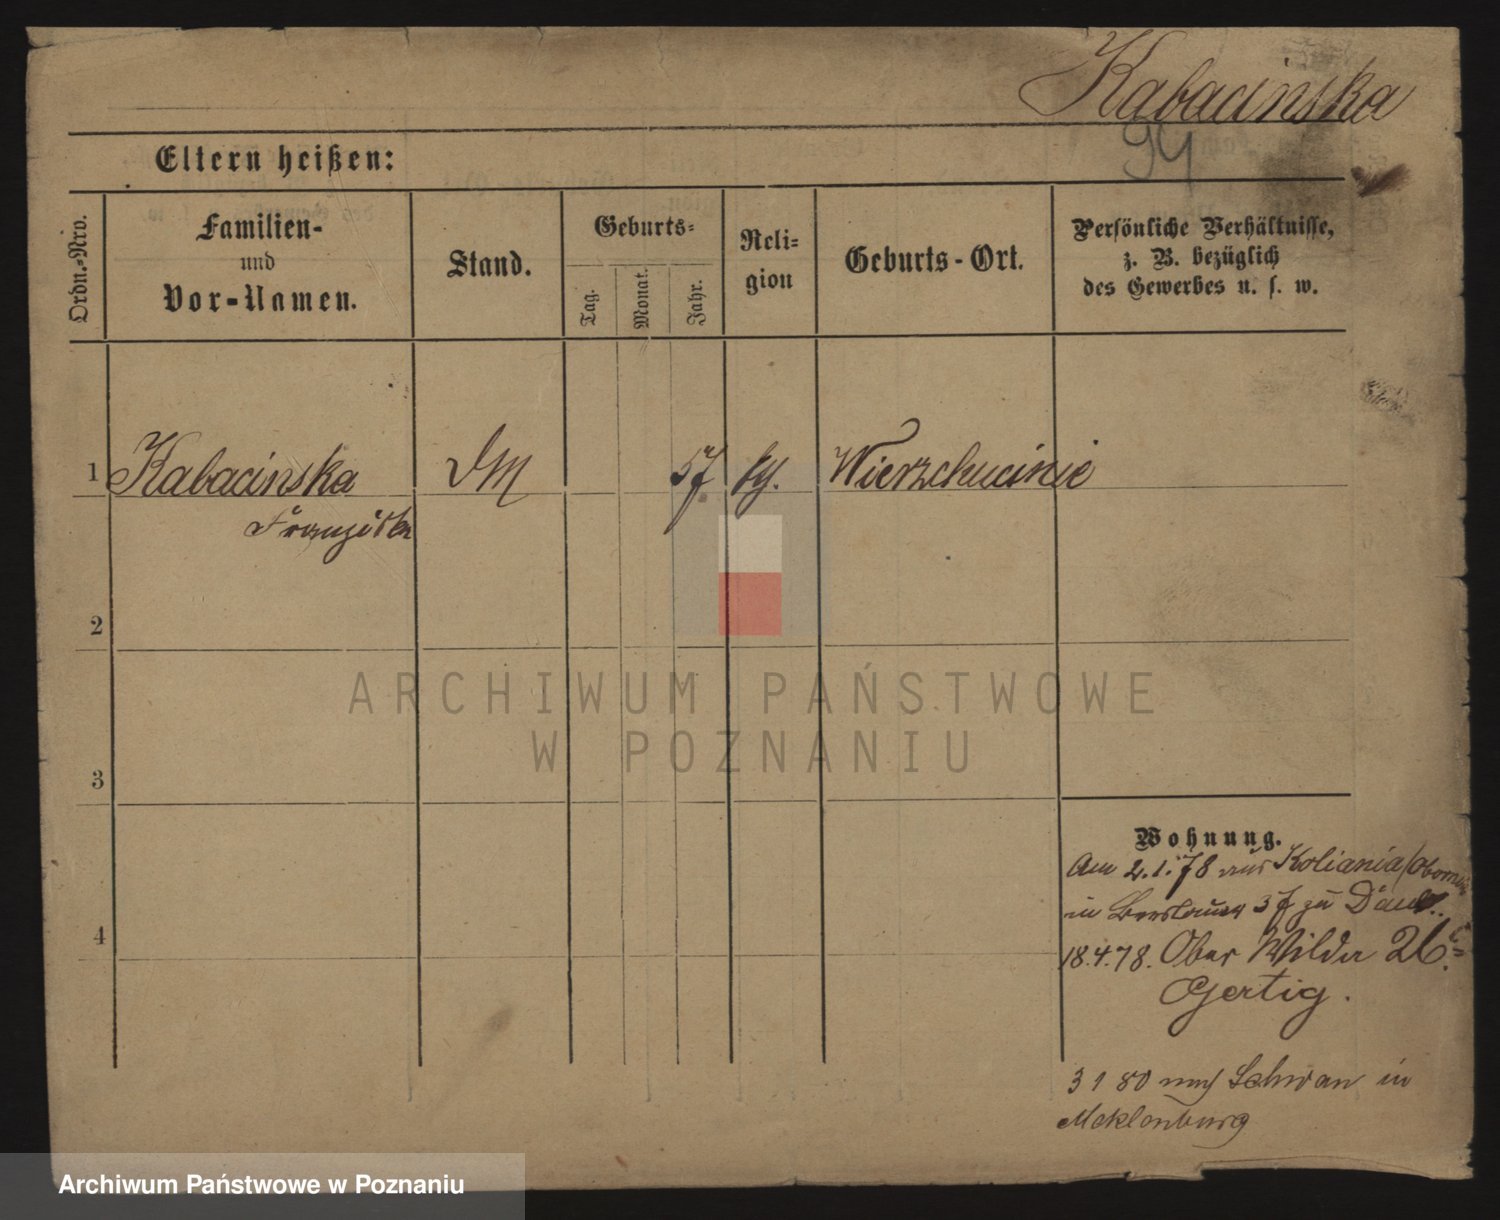 Kabacinska
94
Eltern heißen:
Ordn.-Nro.
Familien-
und
Vor-Namen.
Stand.
Geburts-
Tag.
Monat.
Jahr.
Reli-
gion
Geburts-Ort.
Persönliche Verhältnisse,
z. B. bezüglich
des Gewerbes u. s. w.
1 Kabacinska DM 57 kth. Wierzchucinie
Franziska
2
ARCHIWUM PAŃSTWOWE
W POZNANIU
3
Wohnung.
Am 2.1.78 aus Koliania/Obornik
in 37 zu
4
18.4.78. Ober Wilda 26.
Gertig.
3 1 80 nach Schwan in
Meklenburg
Archiwum Państwowe w Poznaniu